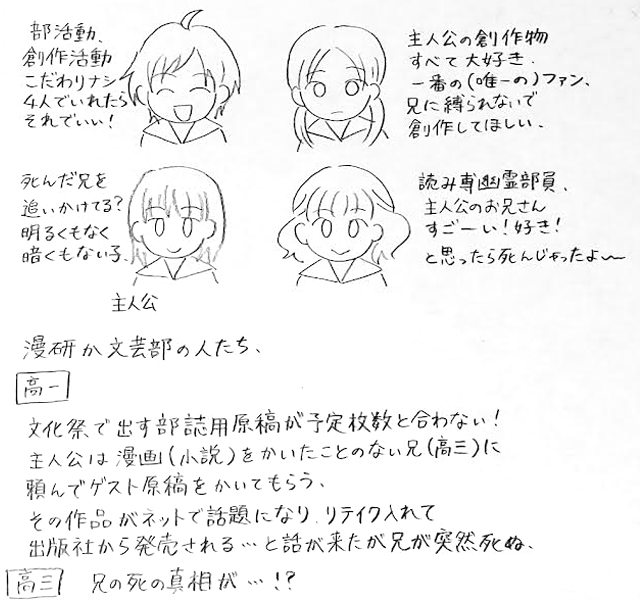 部活動、
創作活動
こだわりナシ
4人でいれたら
それでいい!
主人公の創作物
すべて大好き.
一番の(唯一の)ファン、
兄に縛られないで
創作してほしい.
死んだ兄を
追いかけてる?
明るくもなく
暗くもない子.
主人公
読み専幽霊部員、
主人公のお兄さん
すごーい!好き!
と思ったら死んじゃったよ〜
漫研か文芸部の人たち、
高一
文化祭で出す部誌用原稿が予定枚数と合わない!
主人公は漫画(小説)をかいたことのない兄(高三)に
頼んでゲスト原稿をかいてもらう、
その作品がネットで話題になり、リテイク入れて
出版社から発売される…と話が来たが兄が突然死ぬ、
高三 兄の死の真相が…!?